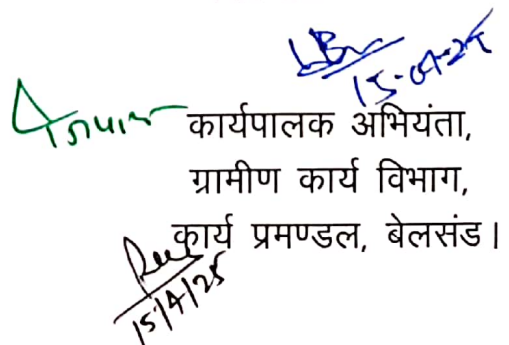 15-04-25
कार्यपालक अभियंता,
ग्रामीण कार्य विभाग,
कार्य प्रमण्डल, बेलसंड।
15/4/25